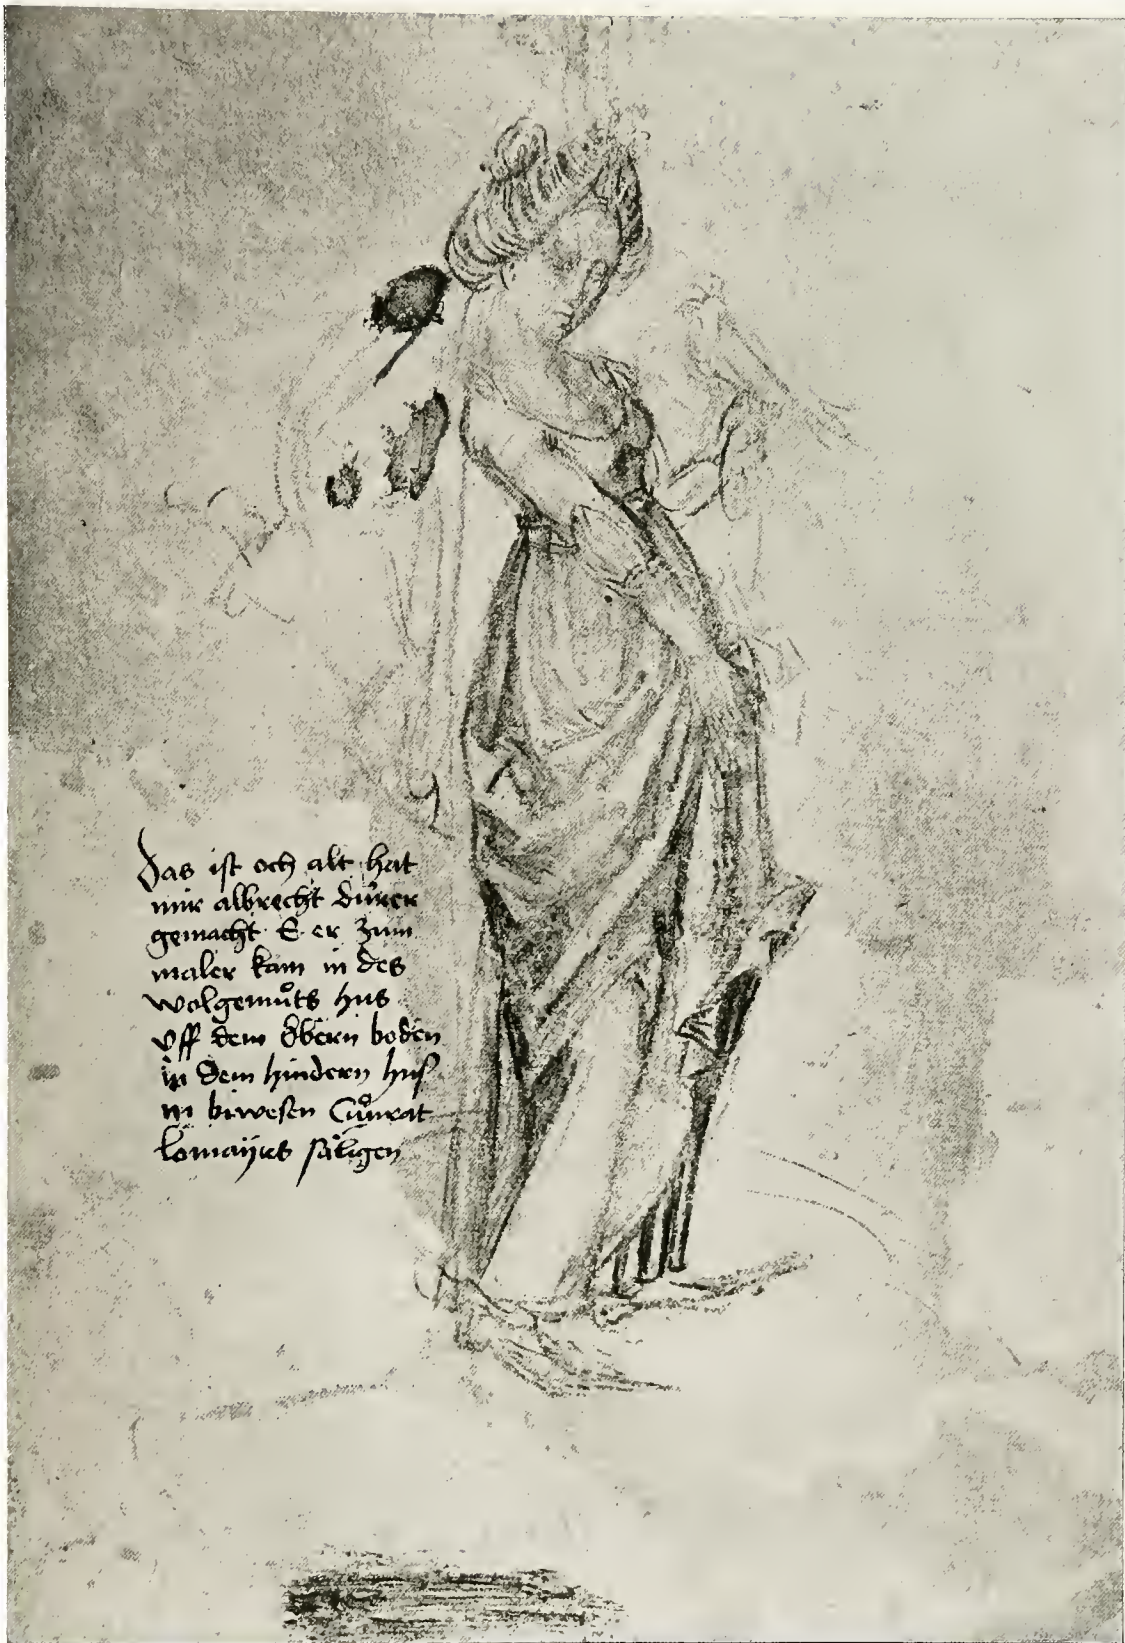 Das ist och alt hat
mir albrecht dürer
gemacht E er zum
maler kam in des
wolgemůts hus
vff dem obern boden
in dem hindern hus
in biwesen Cůnrat
lomayrs säligen